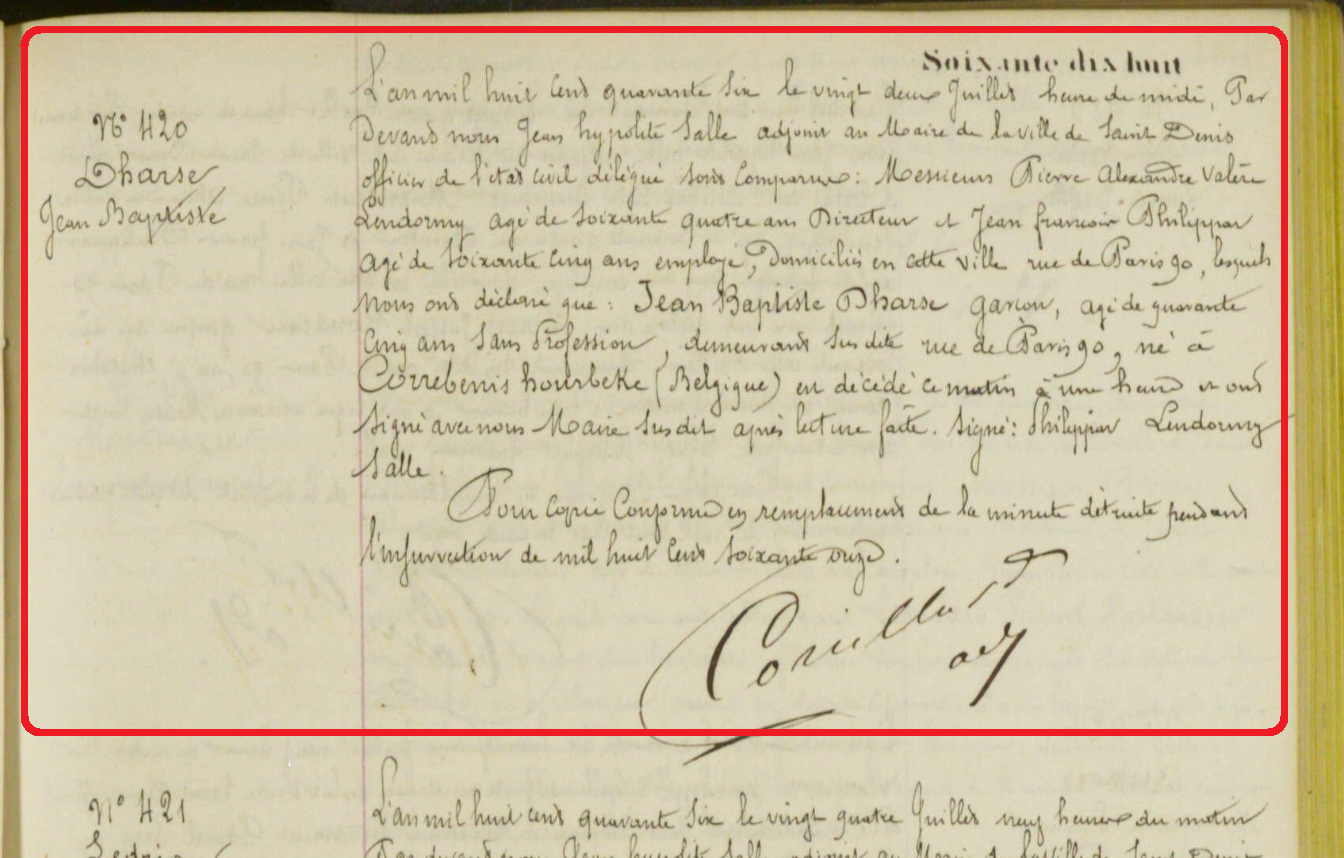 Soixante dix huit
N° 420
Dharse
Jean Baptiste
L'an mil huit cent quarante six le vingt deux Juillet heure de midi, Par
Devant nous Jean hypolite Salle adjoint au Maire de la ville de Saint Denis
officier de l'état civil délégué sont comparus : Messieurs Pierre Alexandre Valère
Lendormy agé de soixante quatre ans Directeur et Jean francois Philippar
agé de soixante cinq ans employé, Domiciliés en cette ville rue de Paris 90, lesquels
nous ont déclaré que : Jean Baptiste Dharse garcon, agé de quarante
cinq ans sans Profession, demeurant susdite rue de Paris 90, né à
Correbenis hourbeke (Belgique) est décédé ce matin à une heure et ont
signé avec nous Maire susdit après lecture faite. signé : Philippar Lendormy
Salle.
Pour copie conforme en remplacement de la minute détruite pendant
l'insurrection de mil huit cent soixante onze.
adj
N° 421
L'an mil huit cent quarante six le vingt quatre Juillet neuf heures du matin